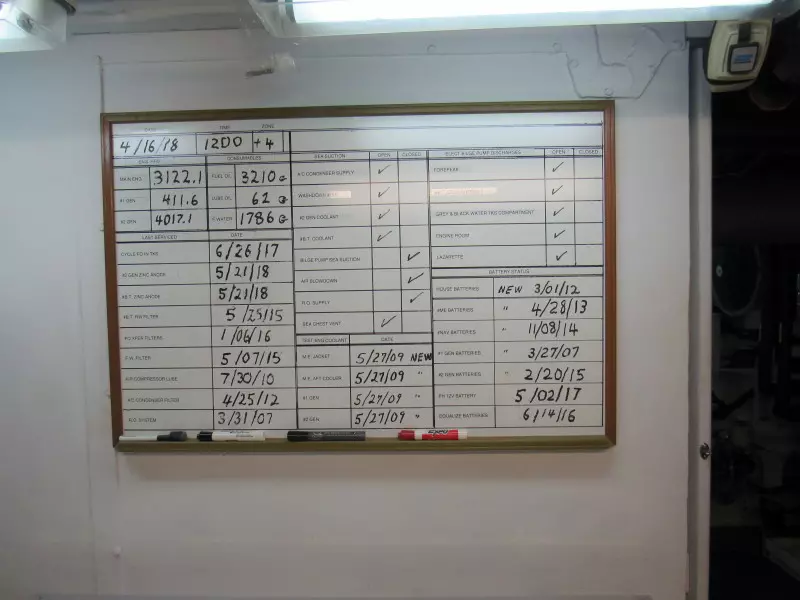 DATE TIME ZONE
4/16/18 1200 +4
ENG HRS CONSUMABLES
MAIN ENG 3122.1 FUEL OIL 3210 G
#1 GEN 411.6 LUBE OIL 62 G
#2 GEN 4017.1 WATER 1786 G
LAST SERVICED DATE
6/26/17
#2 GEN ZINC ANODE 5/21/18
#B.T. ZINC ANODE 5/21/18
FILTER 5/25/15
XFER FILTERS 1/06/16
F.W. FILTER 5/07/15
AIR COMPRESSOR LUBE 7/30/10
4/25/12
SYSTEM 3/31/07
SEA SUCTION OPEN CLOSED
A/C CONDENSER SUPPLY ✓
WASHDOWN ✓
#2 GEN COOLANT ✓
#B.T. COOLANT ✓
BILGE PUMP SEA SUCTION ✓
AIR BLOWDOWN ✓
R.O. SUPPLY ✓
SEA CHEST VENT ✓
COOLANT DATE
M.E. JACKET 5/27/09 NEW
M.E. AFTCOOLER 5/27/09 "
#1 GEN 5/27/09 "
#2 GEN 5/27/09 "
BILGE PUMP DISCHARGES OPEN CLOSED
FOREPEAK ✓
✓
GREY & BLACK WATER TKS COMPARTMENT ✓
ENGINE ROOM ✓
LAZARETTE ✓
BATTERY STATUS
HOUSE BATTERIES NEW 3/01/12
#ME BATTERIES " 4/28/13
#NAV BATTERIES " 11/08/14
#1 GEN BATTERIES " 3/27/07
#2 GEN BATTERIES " 2/20/15
PH 12V BATTERY 5/02/17
EQUALIZE BATTERIES 6/14/16
EXPO